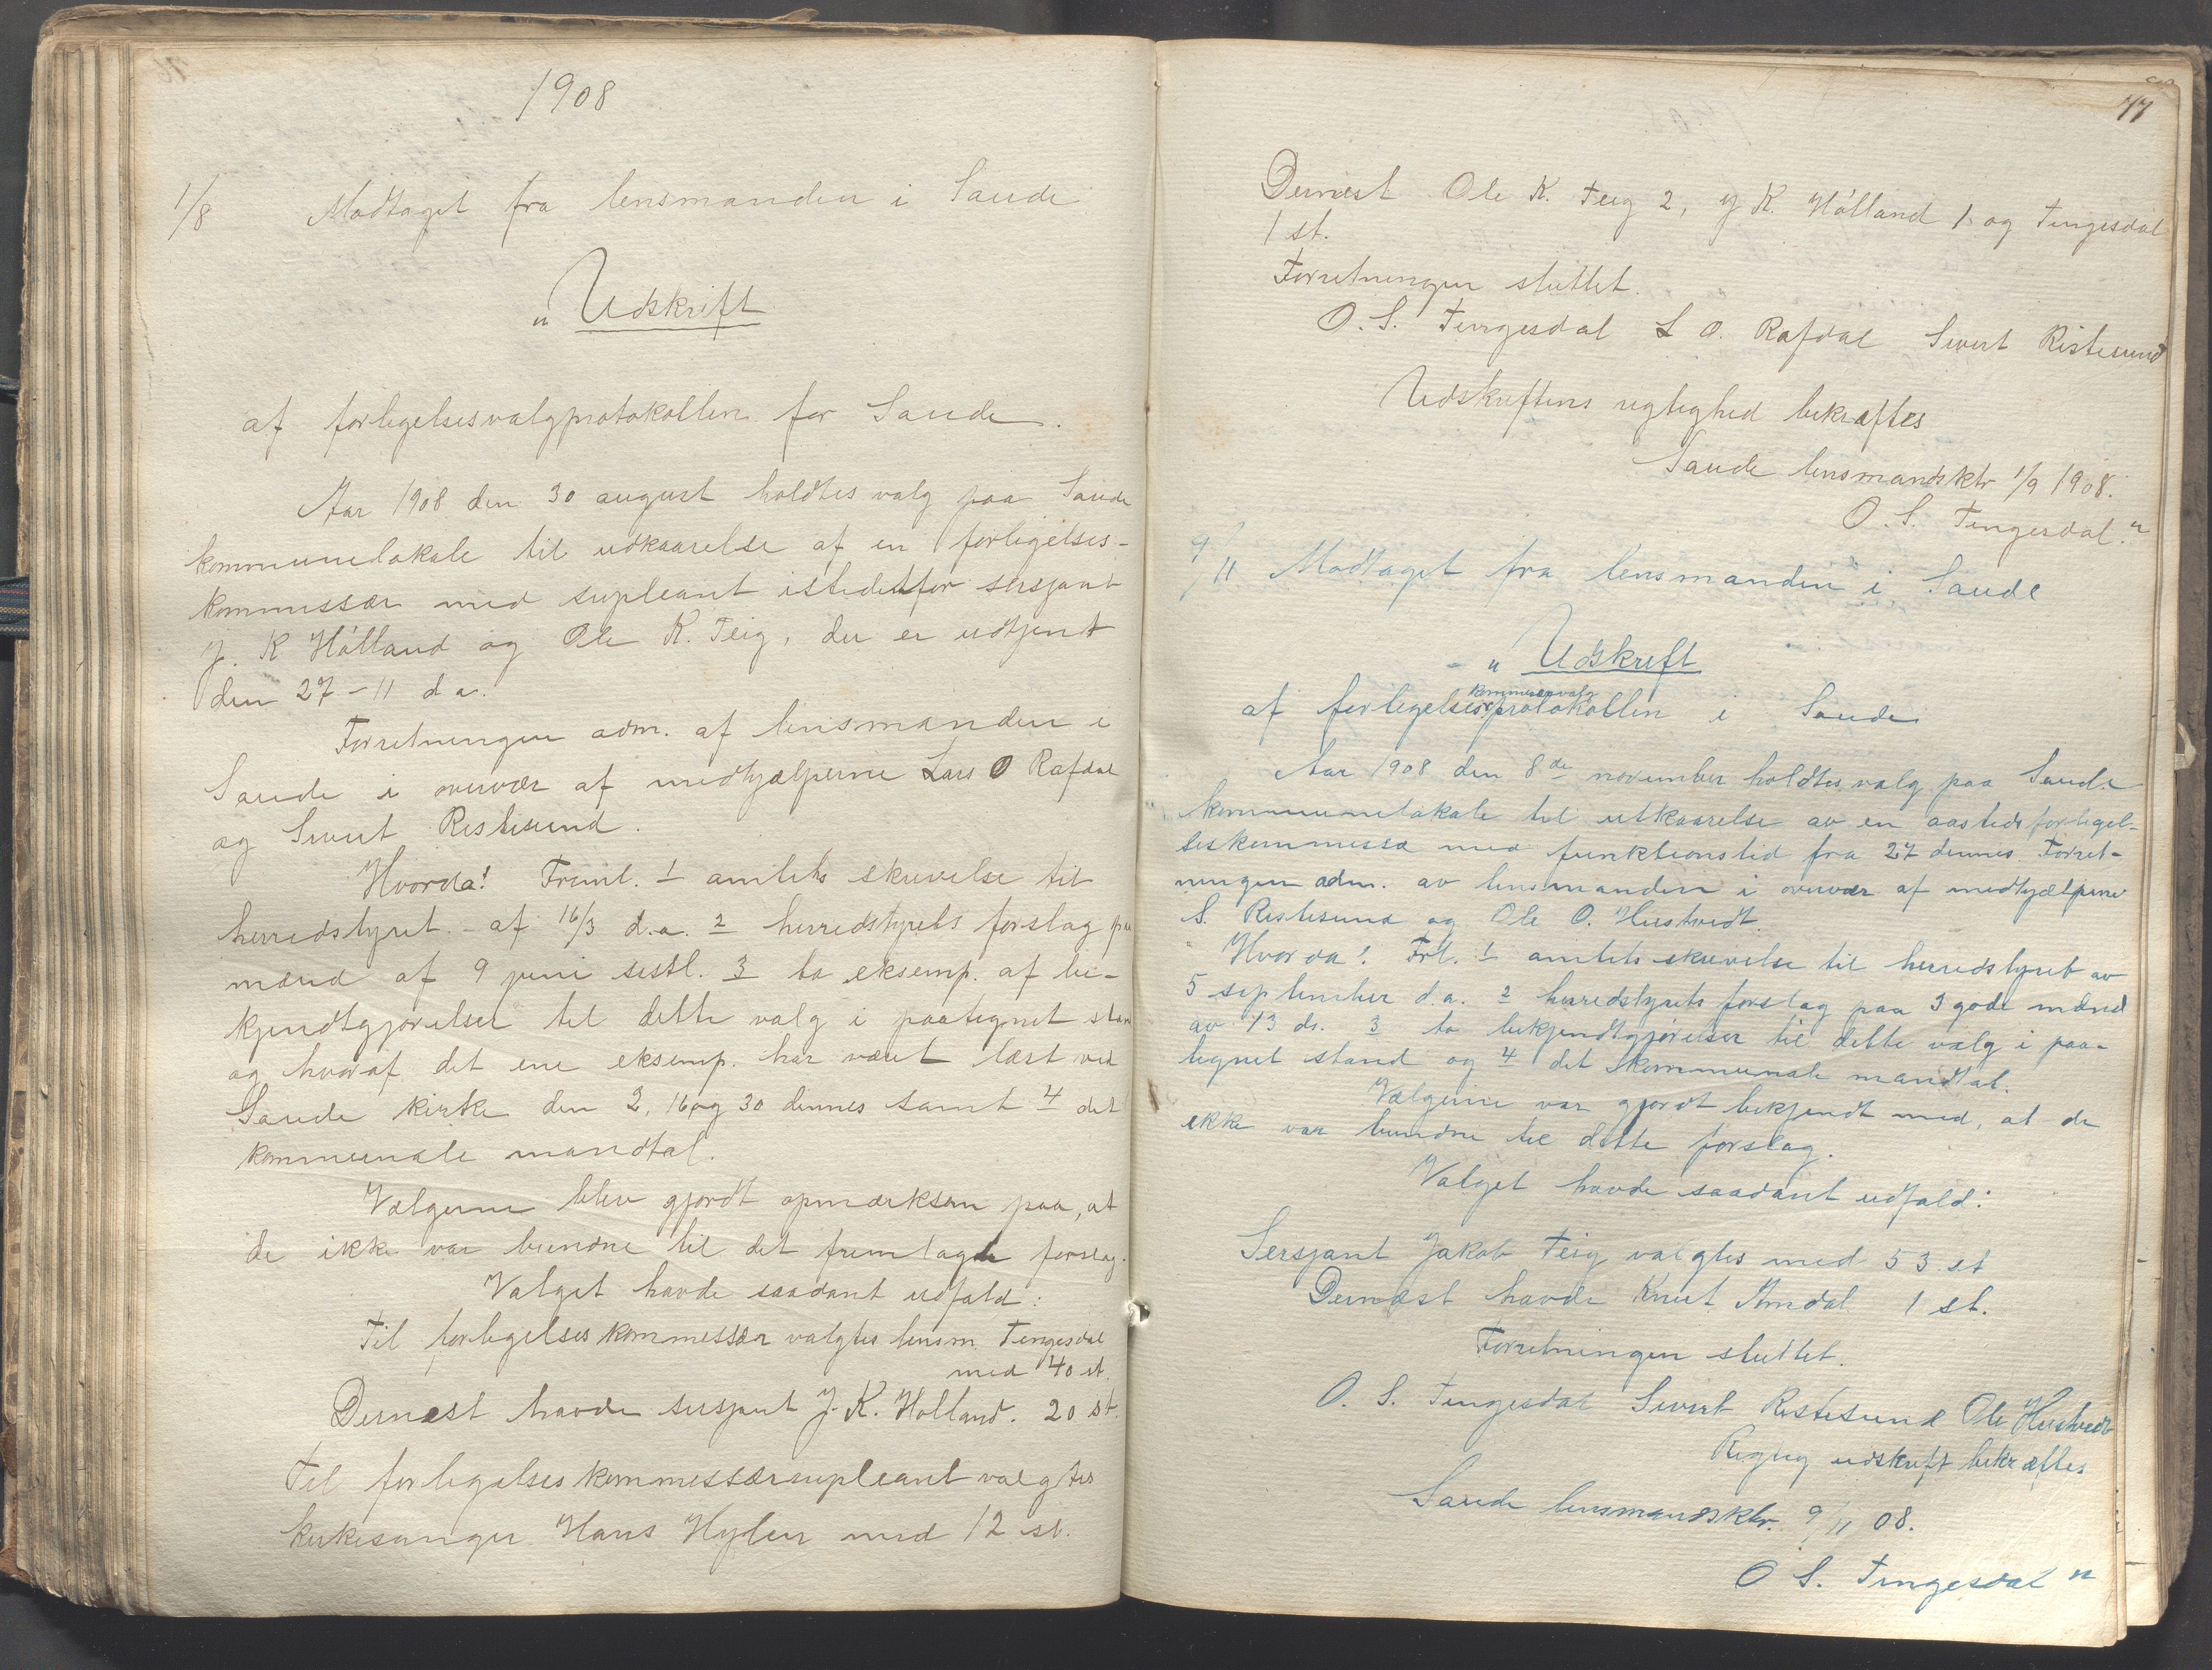 1908
1/8 Modtaget fra lensmanden i Saude
„ Udskrift
af forligelsesvalgprotokollen for Saude.
Aar 1908 den 30 august holdtes valg paa Saude
kommunelokale til udkaarelse af en forligelses-
kommissær med supleant istedetfor sersjant
J. K Hólland og Ole K. Teig, der er udtjent
den 27-11 d a.
Forretningen adm. af lensmanden i
Saude i overvær af medhjælperne Lars O Rafdal
og Sivert Ristesund.
Hvorda! Freml. 1 amtets skrivelse til
herredstyret.- af 16/3 d.a. 2 herredstyrets forslag paa
mænd af 9 juni sistl. 3 to eksemp. af be-
kjendtgjørelser til dette valg i paategnet stan
og hvoraf det ene eksemp. har været læst ved
Saude kirke den 2, 16 og 30 dennes samt 4 det
kommunale mandtal.
Vælgerne blev gjordt opmærksom paa, at
de ikke var bundne til det fremlagde forslag.
Valget havde saadant udfald:
Til forligelseskommissær valgtes lensm. Tengesdal
med 40 st.
Dernæst havde sersjant J. K. Holland. 20 st.
Til forligelseskommissærsupleant valgtes
kirkesanger Hans Hylen med 12 st.
77
Dernæst Ole K. Teig 2, J K. Hólland 1 og Tengesdal
1 st.
Forretningen sluttet.
O. S. Tengesdal L O. Rafdal Sivert Ristesund
Udskriftens rigtighed bekræftes
Saude lensmandsktr 1/9 1908.
O. S. Tengesdal."
9/11 Modtaget fra lensmanden i Saude
„ Udskrift
kommisærvalg
af forligelsesprotokollen i Saude
Aar 1908 den 8de november holdtes valg paa Saude
kommunelokale til utkaarelse av en aasteds forligel-
seskommissæ med funktionstid fra 27 dennes. Forret-
ningen adm. av lensmanden i overvær af medhjælperne
S. Ristesund og Ole O. Hustvedt.
Hvorda! Frl. 1 amtets skrivelse til herredstyret av
5 september d.a. 2 herredstyrets forslag paa 3 gode mænd
av 13 ds. 3 to bekjendtgjørelser til dette valg i paa-
tegnet stand og 4 det kommunale mandtal.
Vælgerne var gjordt bekjendt med, at de
ikke var bundne til dette forslag.
Valget havde saadant udfald:
Sersjant Jakob Teig valgtes med 53 st
Dernæst havde Knut Amdal 1 st.
Forretningen sluttet.
O. S. Tengesdal Sivert Ristesund Ole Hustvedt
Rigtig udskrift bekræftes
Saude lensmandsktr. 9/11 08.
O S. Tengesdal "